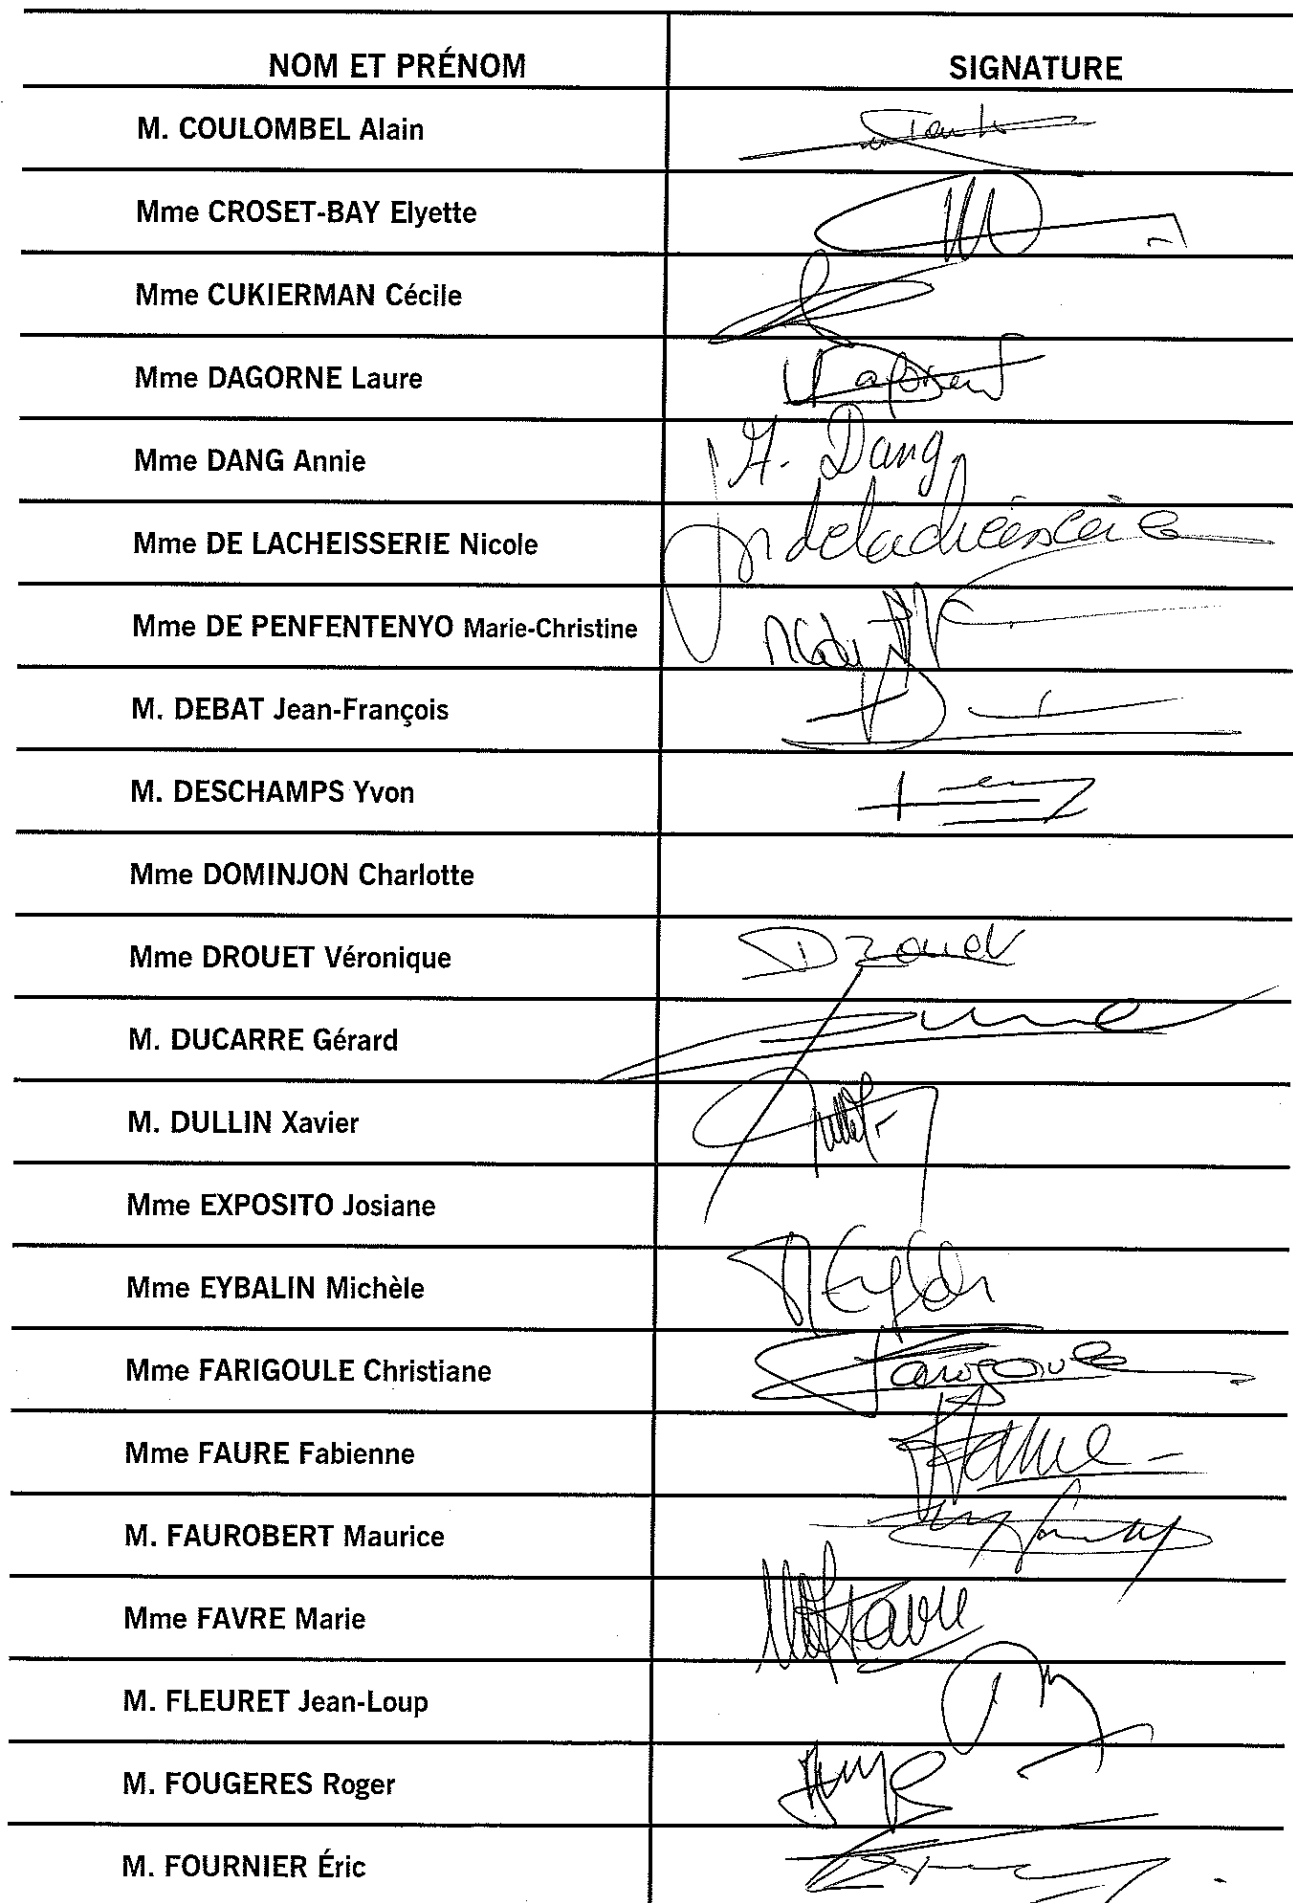 NOM ET PRÉNOM SIGNATURE
M. COULOMBEL Alain
Mme CROSET-BAY Elyette
Mme CUKIERMAN Cécile
Mme DAGORNE Laure
Mme DANG Annie A. Dang
Mme DE LACHEISSERIE Nicole
Mme DE PENFENTENYO Marie-Christine
M. DEBAT Jean-François
M. DESCHAMPS Yvon
Mme DOMINJON Charlotte
Mme DROUET Véronique Drouet
M. DUCARRE Gérard
M. DULLIN Xavier
Mme EXPOSITO Josiane
Mme EYBALIN Michèle
Mme FARIGOULE Christiane Farigoule
Mme FAURE Fabienne Faure
M. FAUROBERT Maurice
Mme FAVRE Marie Favre
M. FLEURET Jean-Loup
M. FOUGERES Roger
M. FOURNIER Éric